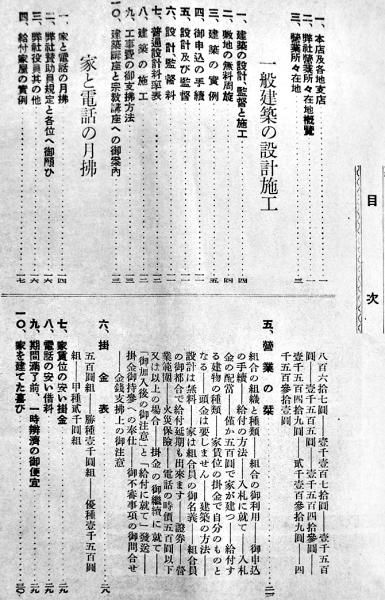 目次
一、本店及各地支店
二、弊社營業所々在地概覽
三、營業所々在地
一般建築の設計施工
一、建築の設計、監督と施工
二、敷地の無料周旋
三、建築の實例
四、御申込の手續
五、設計及び監督
六、設計監督料
七、普通設計料率表
八、建築の施工
九、工事費の御支拂方法
一〇、建築講座と宗敎講座への御案內
家と電話の月拂
一、家と電話の月拂
二、弊社贊助員規定と各位へ御願ひ
三、弊社役員其の他
四、給付家屋の實例
八百六拾七圓――壹千壹百七拾圓――壹千五百
圓――壹千五百五圓――壹千五百四拾參圓――
壹千五百四拾九圓――貳千壹百參拾九圓――四
千五百參拾壹圓
五、營業の栞
組合の組織と種類――組合の御利用――御申込
の手續――給付の方法――入札に就て――入札
金の配當――僅か五百圓で家が建つ――給付す
る建物の種類――家賃位の掛金で自分のものと
なる――頭金は要しません――建築の方法――
設計は無料――家は組合員の御名義――組合員
の御都合で給付延期も出來ます――證券――營
業範圍――火災保險――電話の時價五百圓以下
又は以上の場合――掛金の御繼續に就て――
「御加入後の御注意」と「給付に就て」發送――
掛金御持參への奉仕――御不審事項の御問合せ
――金錢支拂上の御注意
六、掛金表
五百圓組――勝種壹千圓組――優種壹千五百圓
組――甲種貳千圓組
七、家賃位の安い掛金
八、電話の安い借料
九、期間滿了前、一時辨濟の御便宜
一〇、家を建てた喜び